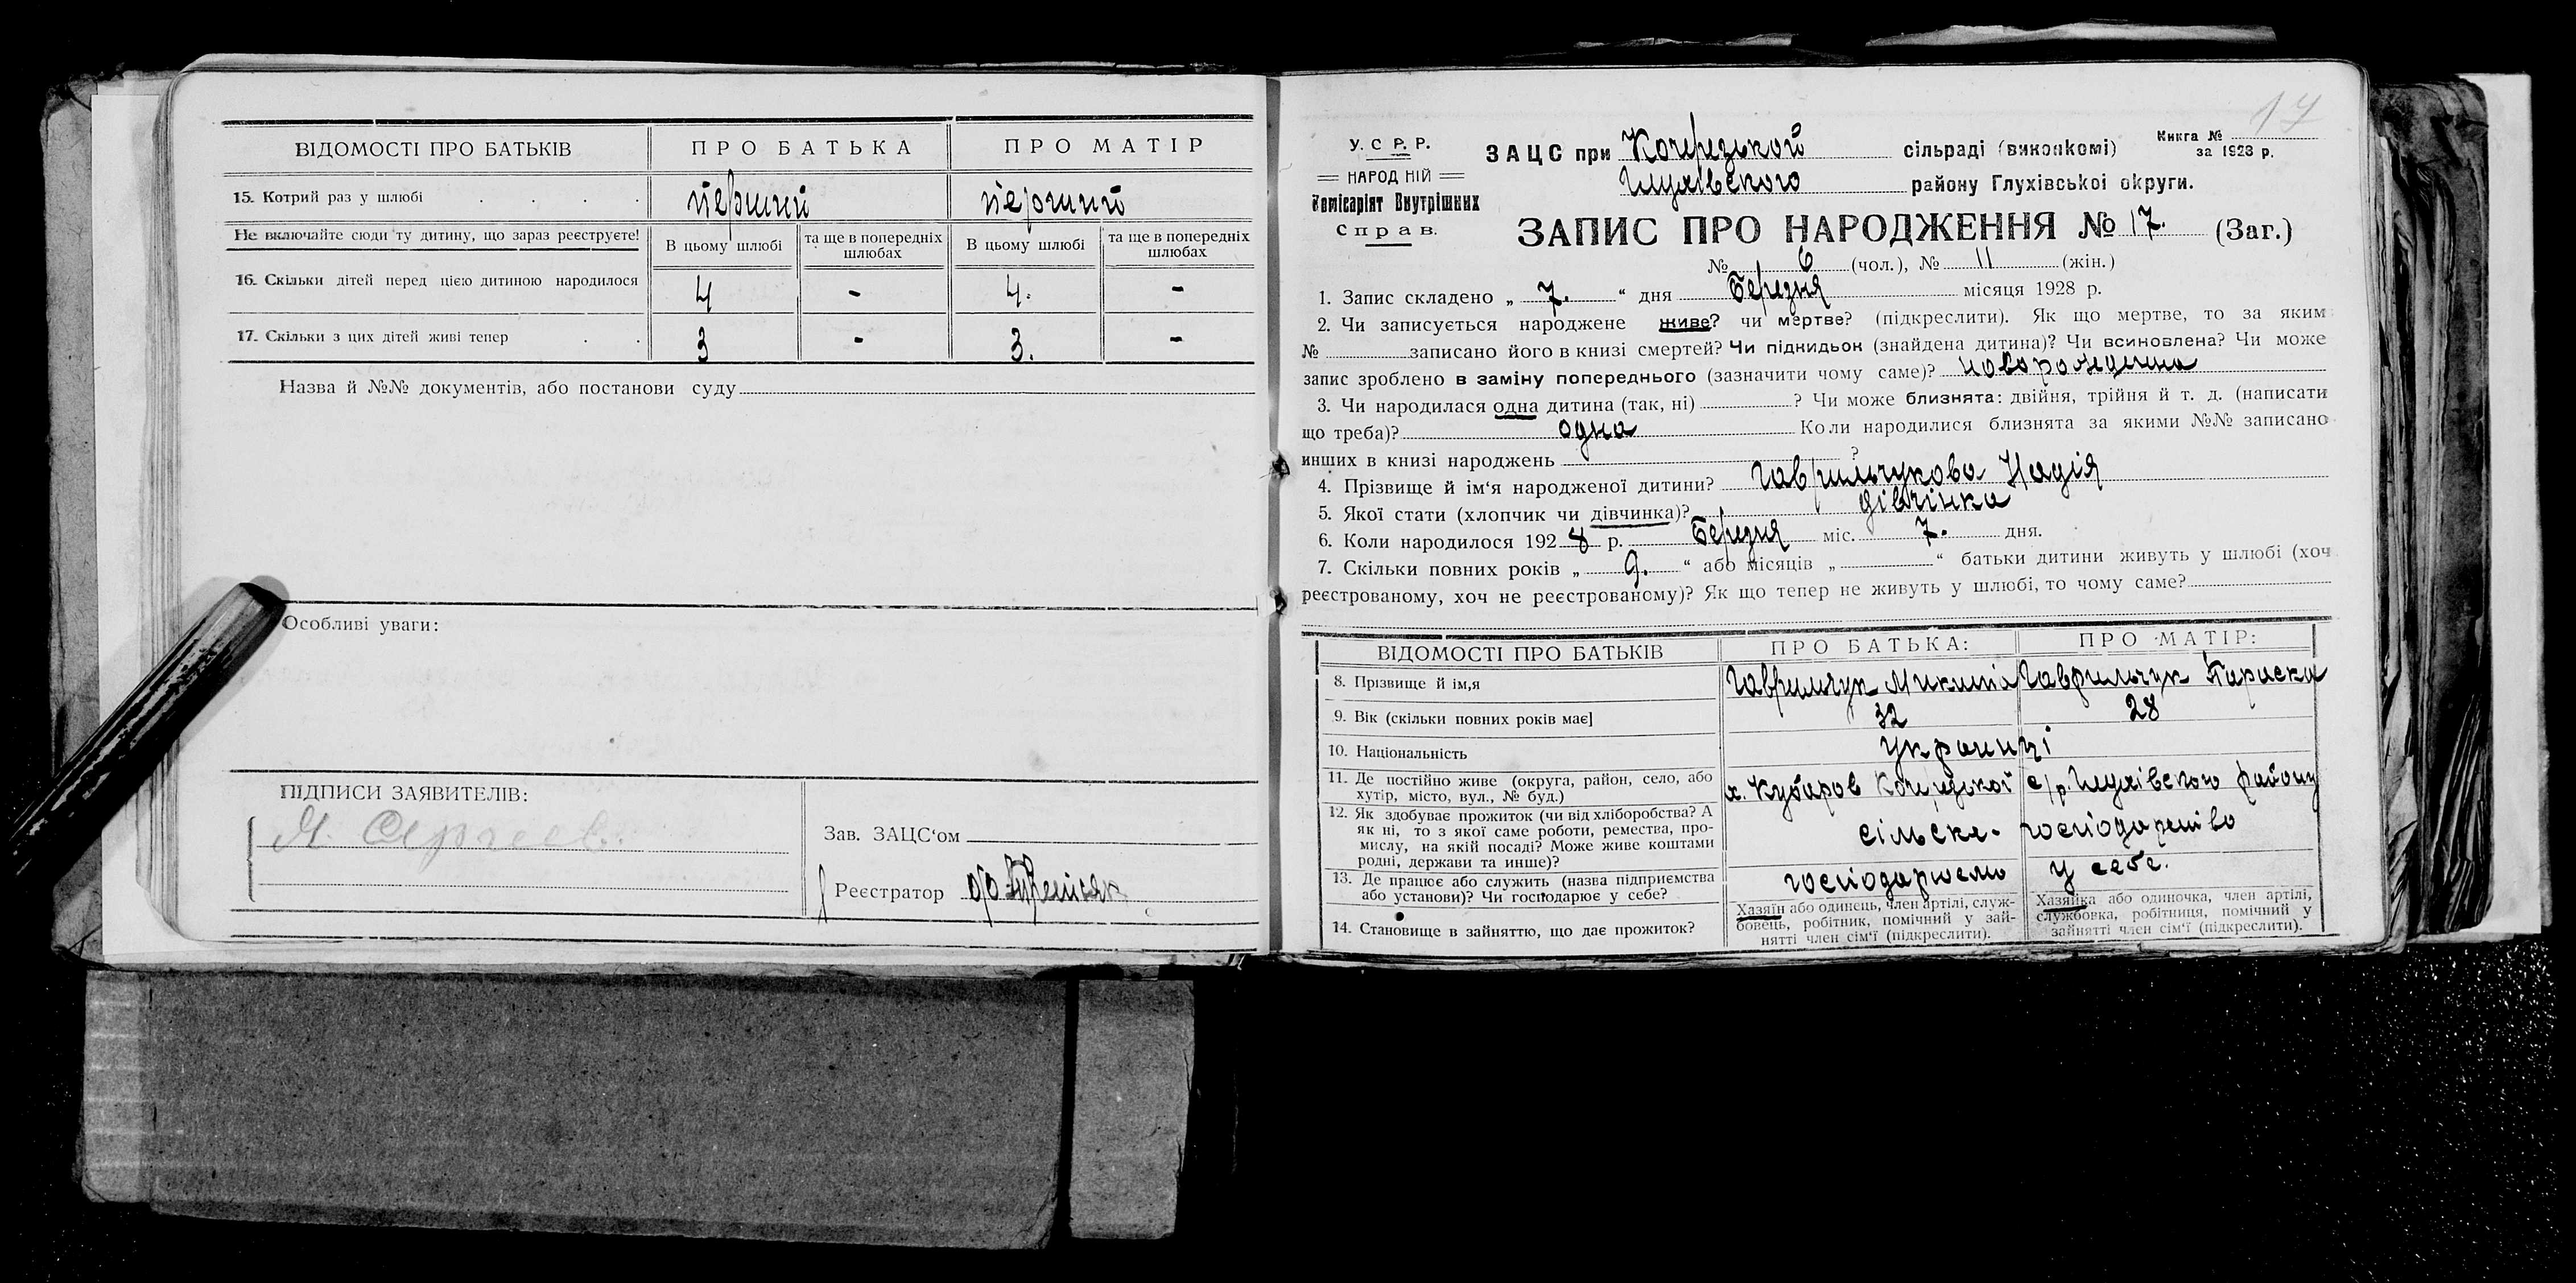 ВІДОМОСТІ ПРО БАТЬКІВ ПРО БАТЬКА ПРО МАТІР
15. Котрий раз у шлюбі . . . . перший перший
Не включайте сюди ту дитину, що зараз реєструєте! В цьому шлюбі та ще в попередніх шлюбах В цьому шлюбі та ще в попередніх шлюбах
16. Скільки дітей перед цією дитиною народилося 4 - 4. -
17. Скільки з цих дітей живі тепер . . 3 - 3. -
Назва й №№ документів, або постанови суду
Особливі уваги:
ПІДПИСИ ЗАЯВИТЕЛІВ:
Зав. ЗАЦС‘ом
Реєстратор
17
У. С Р. Р.
НАРОДНІЙ
Комісаріят Внутрішних
Справ.
ЗАЦС при Кочерезькой сільраді (виконкомі)
Глухівского району Глухівської округи.
Книга №
за 1928 р.
ЗАПИС ПРО НАРОДЖЕННЯ № 17. (Заг.)
№ 6 (чол.), № 11 (жін.)
1. Запис складено „ 7. “ дня Березня місяця 1928 р.
2. Чи записується народжене живе? чи мертве? (підкреслити). Як що мертве, то за яким
№ записано його в книзі смертей? Чи підкидьок (знайдена дитина)? Чи всиновлена? Чи може
запис зроблено в заміну попереднього (зазначити чому саме)? новорожденна
3. Чи народилася одна дитина (так, ні) ? Чи може близнята: двійня, трійня й т. д. (написати
що треба)? одна Коли народилися близнята за якими №№ записано
инших в книзі народжень ?
4. Прізвище й ім‘я народженої дитини? Гаврильчукова Надія
5. Якої стати (хлопчик чи дівчинка)? дівчінка
6. Коли народилося 192 8 р. Березня міс. 7. дня.
7. Скільки повних років „ 9. “ або місяців „ “ батьки дитини живуть у шлюбі (хоч
реєстрованому, хоч не реєстрованому)? Як що тепер не живуть у шлюбі, то чому саме?
ВІДОМОСТІ ПРО БАТЬКІВ ПРО БАТЬКА: ПРО МАТІР:
8. Прізвище й ім,я Гаврильчук Микита Гаврильчук Параска
9. Вік (скільки повних років має] 32 28
10. Національність українці
11. Де постійно живе (округа, район, село, або
хутір, місто, вул., № буд.) х. Кубаров Кочерезькой с/р. Глухівского району
12. Як здобуває прожиток (чи від хліборобства? А
як ні, то з якої саме роботи, ремества, про-
мислу, на якій посаді? Може живе коштами
родні, держави та инше)? сільске- господарство
13. Де працює або служить (назва підприємства
або установи)? Чи господарює у себе? господарюємо у себе.
14. Становище в зайняттю, що дає прожиток?
Хазяїн або одинець, член артілі, служ-
бовець, робітник, помічний у зай-
нятті член сім‘ї (підкреслити).
Хазяйка або одиночка, член артілі,
службовка, робітниця, помічний у
зайнятті член сім‘ї (підкреслити).